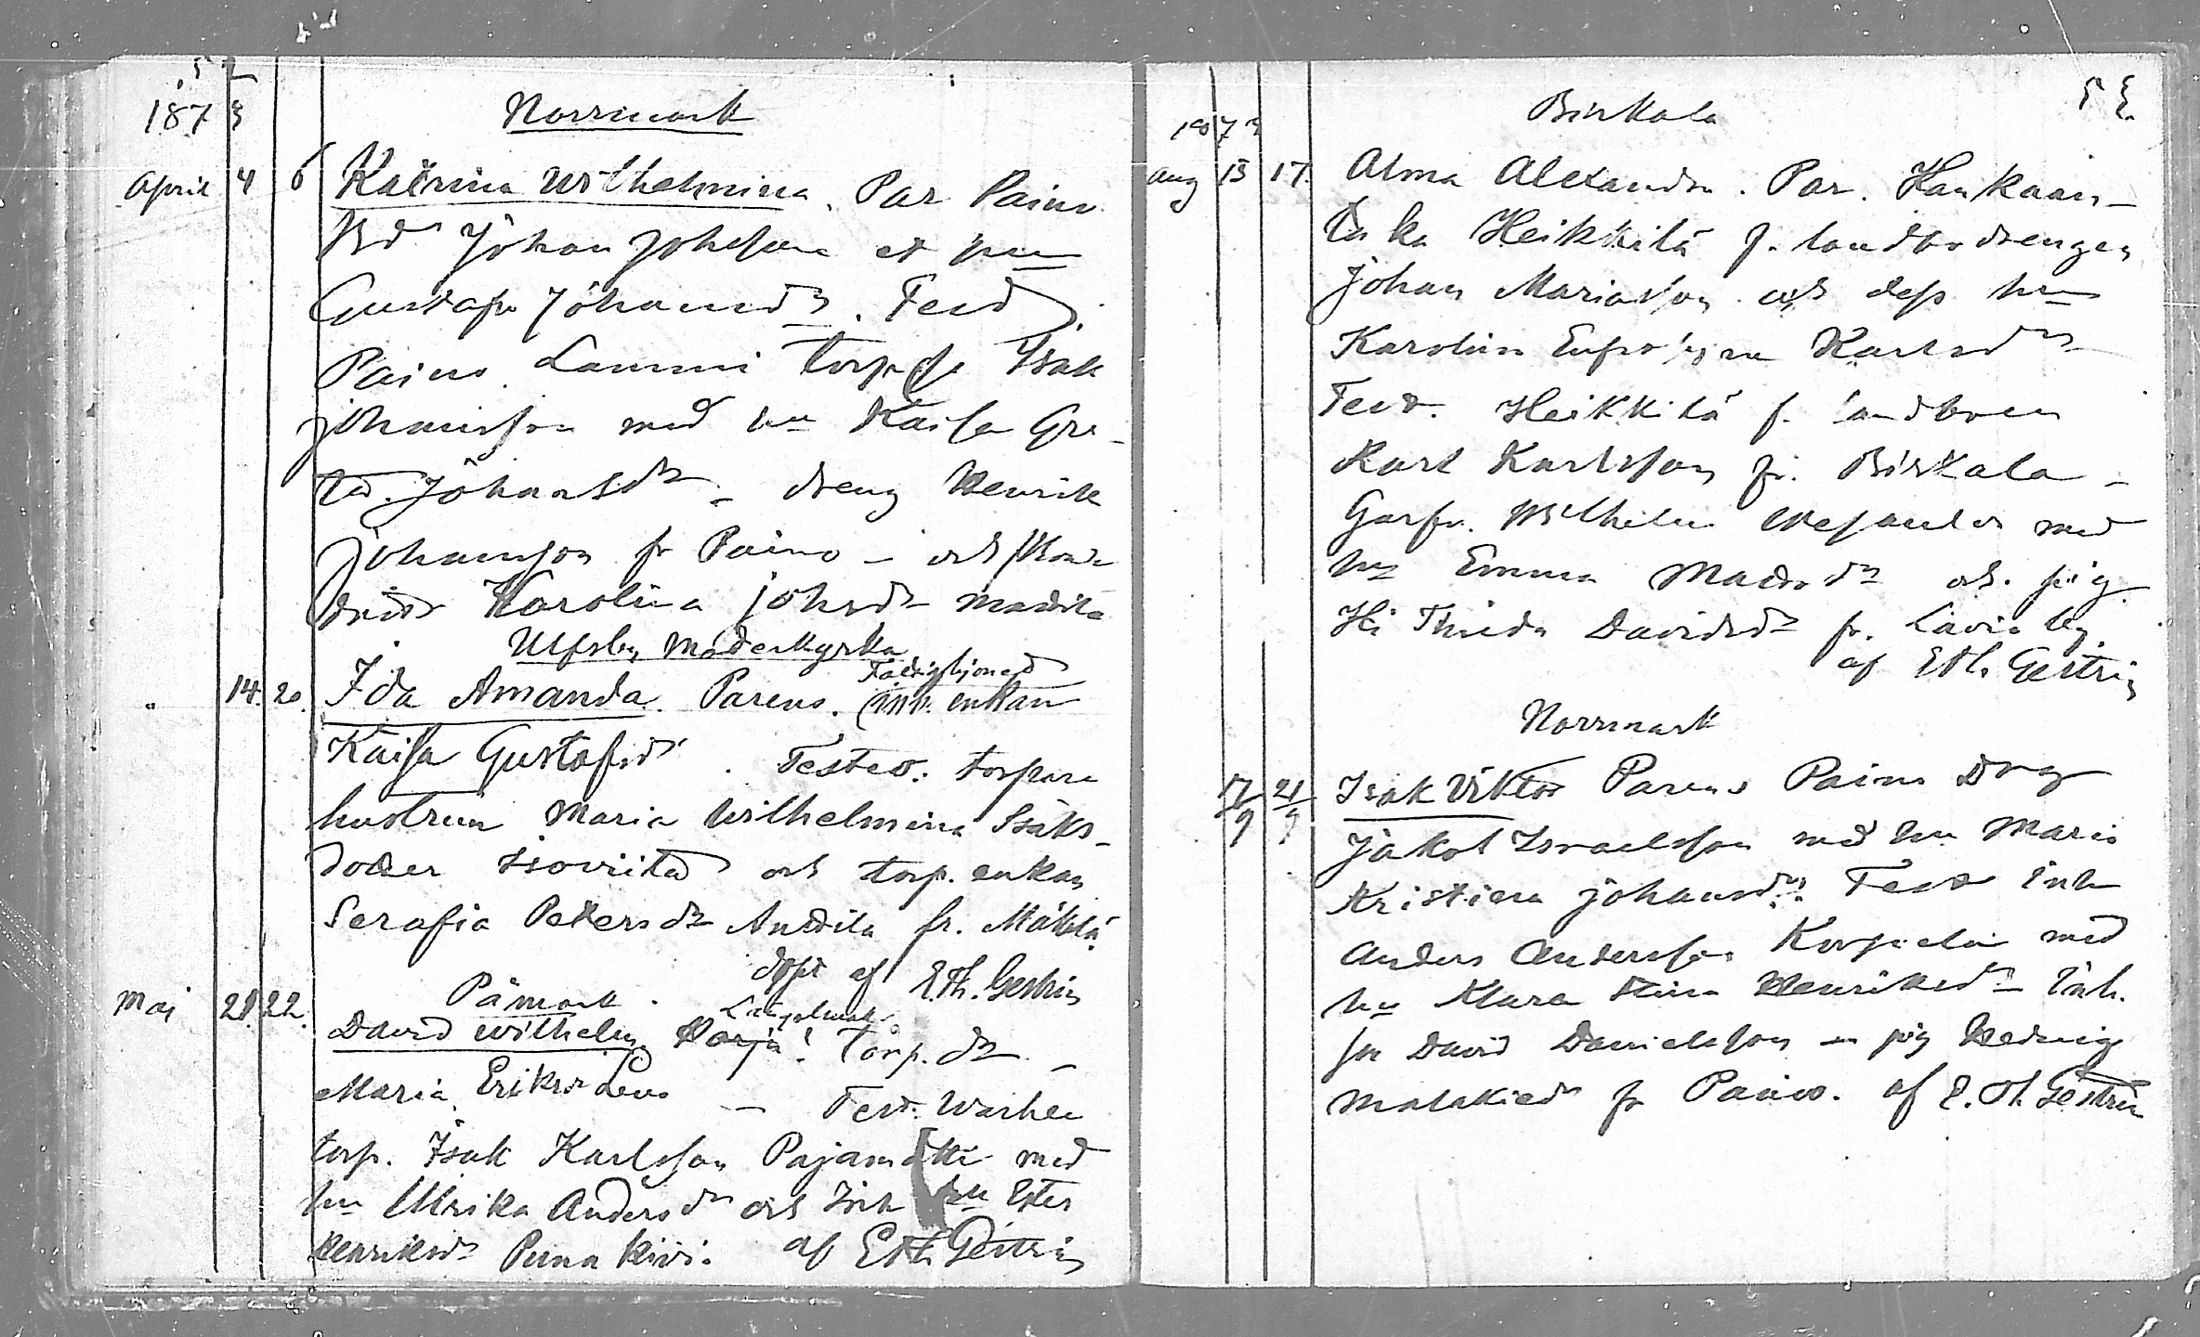 52
1873
Norrmark
April 4 6 Katrina Wilhelmina. Par Paino
Johan Johsson et hu
Gustafva Johansdr. Test
Paino Lammi torp Isak
Johansson med hu Kaisa Gre-
ta Johansdr - dreng Henrik
Johansson fr Paino - och
Karolina Johsdr Mattila
Ulfsby Moderkyrka
14. 20. Ida Amanda. Parens. Fattighjonet enkan
Kaisa Gustafsdr. Testes. torpare
hustrun Maria Wilhelmina Isaks-
dotter Isoviita och torp. enkan
Serafia Petersdr Anttila fr. Mäkelä.
döpt af E.Th. Gestrin
Påmark.
Maj 21. 22. David Wilhelm. Torp. dr
Maria Eriksdr Leva - Test. Warhee
torp. Isak Karlsson Pajamäki med
hu Ulrika Andersdr och Inh hu Ester
Henriksdr Punakivi. af E.Th. Gestrin
53.
1873
Birkala
Aug 15 17. Alma Alexandra. Par. Hankaan-
taka Heikkilä f. landbodrengen
Johan Mariasson och dess hu
Karolina Eufrosyna Karlsdr
Test. Heikkilä f. landboen
Karl Karlsson fr. Birkala -
Garfv. Wilhelm med
hu Emma och pig.
Davidsdr fr. Lavia by.
af E.Th. Gestrin
Norrmark
17/9 21/9 Isak Viktor Parens Paino Drg
Jakob Israelsson med hu Maria
Kristina Johansdr. Test Inh
Anders Andersson Korpela med
hu Klara Stina Henriksdr - Inh.
sn David Danielsson - pig Hedvig
Malakiedr fr Paino. af E.Th. Gestrin